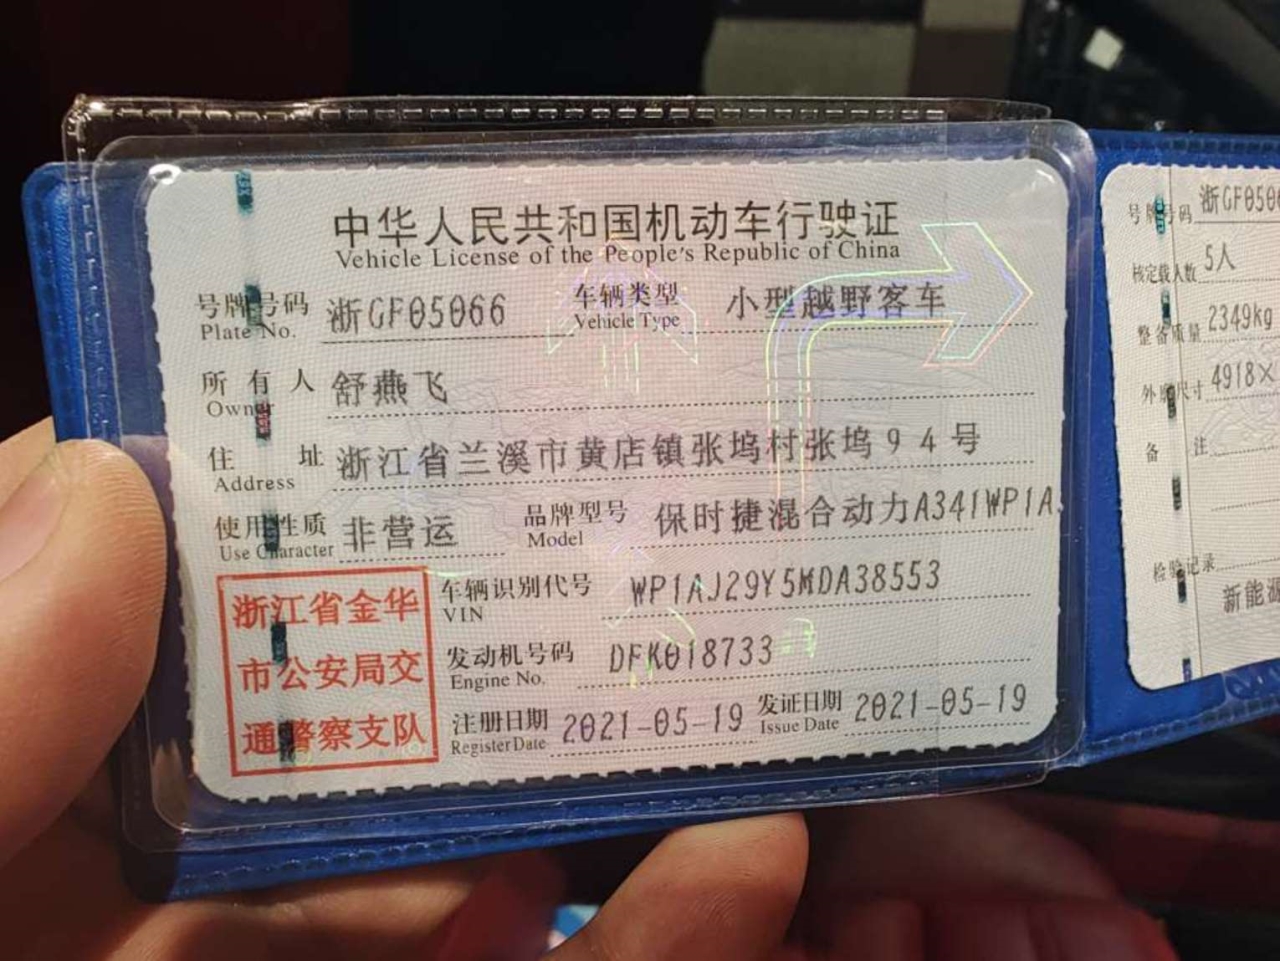 中华人民共和国机动车行驶证
Vehicle License of the People's Republic of China
号牌号码 浙GF05066 车辆类型 小型越野客车
Plate No. Vehicle Type
所有人 舒燕飞
Owner
住址 浙江省兰溪市黄店镇张坞村张坞94号
Address
使用性质 非营运 品牌型号 保时捷混合动力A341WP1A
Use Character Model
车辆识别代号 WP1AJ29Y5MDA38553
VIN
发动机号码 DFK018733
Engine No.
注册日期 2021-05-19 发证日期 2021-05-19
Register Date Issue Date
浙江省金华
市公安局交
通警察支队
号牌号码 浙GF050
核定载人数 5人
整备质量 2349kg
外廓尺寸 4918×
备注
检验记录
新能源